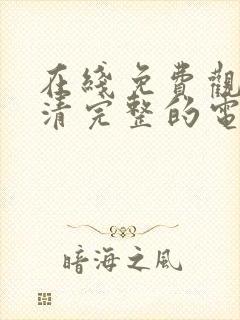 在綫免費觀
清完整的電
暗海之風